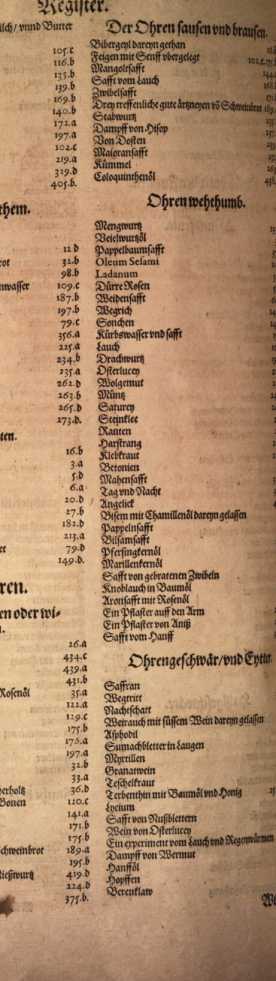 Register.
Milch/ vnnd Butter
105.c
116.b
135.b
139.b
169.b
140.b
172.a
197.a
102.c
219.a
319.d
405.b.
them.
12.d
31.b
98.b
109.c
187.b
197.b
79.c
356.a
225.a
234.b
235.a
262.d
263.b
265.d
273.d.
16.b
3.a
5.d
6.a
20.d
27.b
182.d
213.a
79.d
149.d.
en oder wi-
26.a
434.c
439.a
431.b
Rosenöl 35.a
122.a
129.c
175.b
176.a
197.a
32.b
33.a
36.d
Bonen 120.c
141.a
171.b
175.b
Schweinbrot 189.a
195.b
Nießwurtz 419.d
224.d
375.b.
Der Ohren sausen vnd brausen.
Bibergeyl dareyn gethan
Feigen mit Senff vbergelegt
Mangoltsafft
Safft vom Lauch
Zwibelsafft
Drey treffenliche gute ärtzneyen võ Schweinbrot
Stabwurtz
Dampff von Hisop
Von Dosten
Maioransafft
Kümmel
Coloquinthenöl
Ohren wehthumb.
Mengwurtz
Veielwurtzöl
Pappelbaumsafft
Oleum Sesami
Ladanum
Dürre Rosen
Weidensafft
Wegrich
Sonchen
Kürbswasser vnd safft
Lauch
Drachwurtz
Osterlucey
Wolgemut
Müntz
Saturey
Steinklee
Rauten
Harstrang
Klebkraut
Betonien
Mahensafft
Tag vnd Nacht
Angelick
Bisem mit Chamillenöl dareyn gelassen
Pappelnsafft
Bilsamsafft
Pfersingkernöl
Marillenkernöl
Safft von gebratenen Zwibeln
Knoblauch in Baumöl
Aronsafft mit Rosenöl
Ein Pflaster auff den Arm
Ein Pflaster von Aniß
Safft vom Hanff
Ohrengeschwär/ vnd Eyter
Saffran
Wegtritt
Nachtschatt
Weirauch mit süssem Wein dareyn gelassen
Asphodil
Sumachbletter in Laugen
Myrtillen
Granatwein
Teschelkraut
Terbenthin mit Baumöl vnd Honig
Lycium
Safft von Nußblettern
Wein von Osterlucey
Ein experiment vom Lauch vnd Regenwürmen
Dampff von Wermut
Hanfföl
Hopffen
Berenklaw